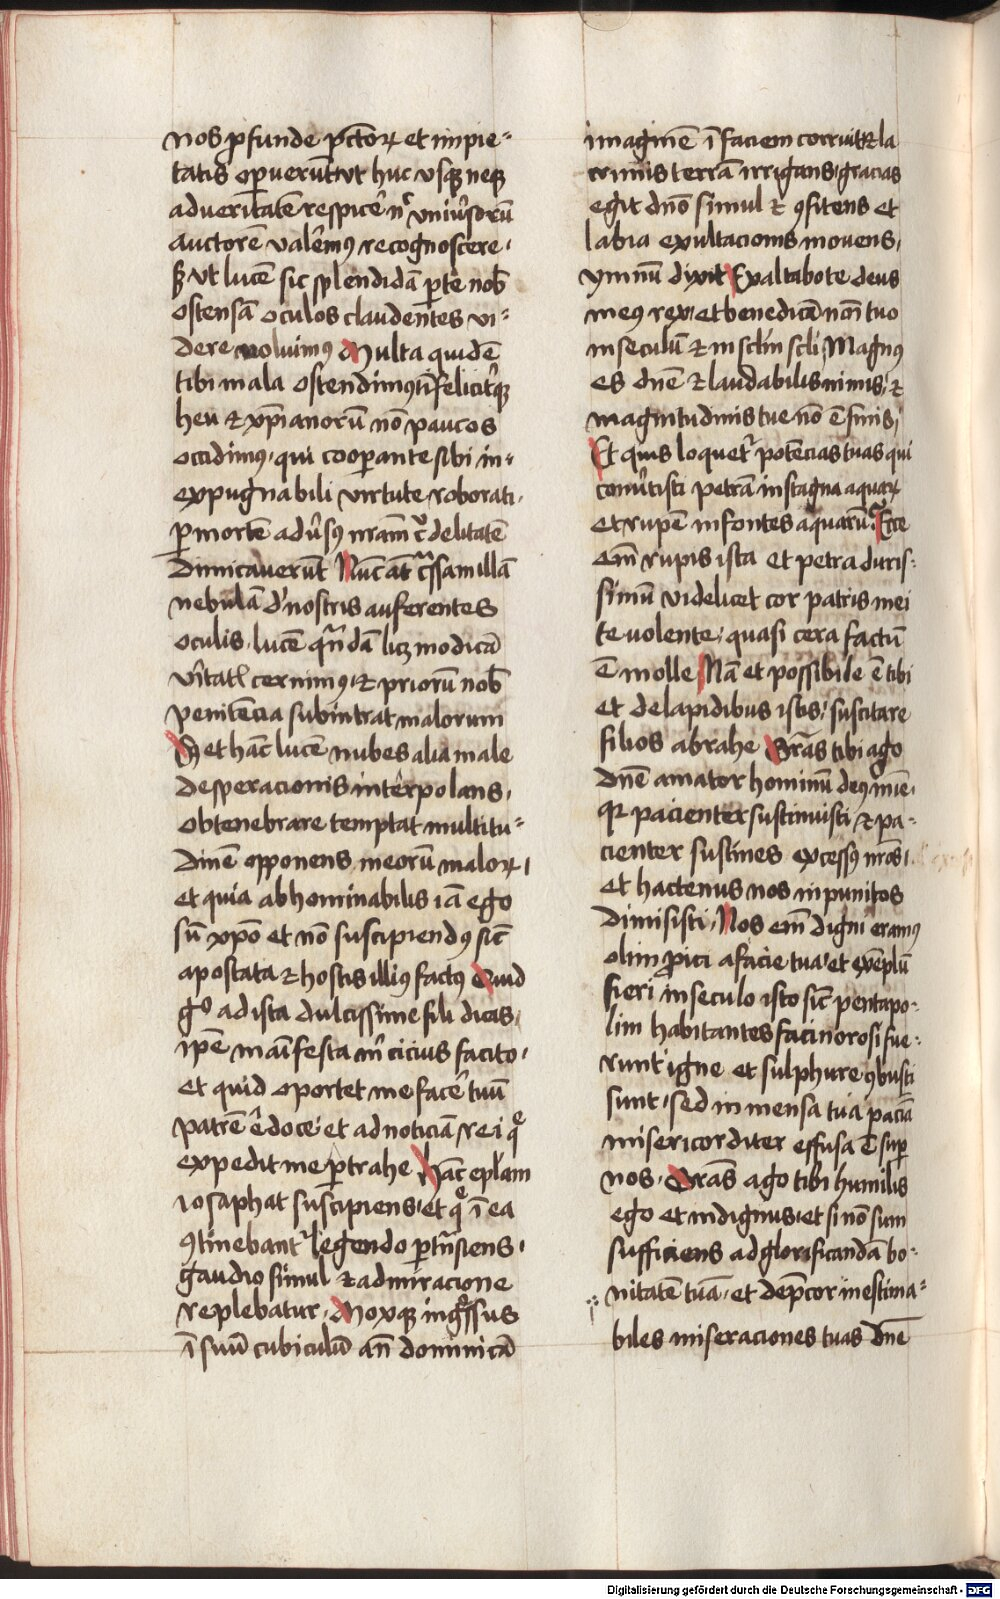 nos ꝓfunde pctoꝝ et impie⸗
tatis oꝑuerunt ut huc usqꝫ neqꝫ
ad veritatē respicē nͨ uniūsorū
auctorē valēmꝰ recognoscere ·
sꝫ ut lucē sic splendidā ꝑ te nob̄
ostensā oculos claudentes vi⸗
dere noluimꝰ Multa quidē
tibi mala ostendimꝰ
heu ⁊ xp̄ianorū nō paucos
occidimꝰ · qui cooꝑante sibi in⸗
expugnabili virtute roborati ·
ꝑ mortē adūsꝰ nr̄am delitatē
dimicaverūt Nūc aūt illā
nebulā d' nostris auferentes
oculis · lucē qn̄dā licꝫ modicā
v̄itatis cernimꝰ · ⁊ priorū nob̄
penitēcia subintrat malorum
Sꝫ et hāc lucē nubes alia male
desperacionis interpolans ·
obtenebrare temptat multitu⸗
dinē opponens meorū maloꝝ ·
et quia abhominabilis iā ego
sū xp̄o et nō suscipiendꝰ sic̄
apostata ⁊ hostis illiꝰ factꝰ Quid
gͦ ad ista dulcissime fili dicas ·
ip̄e maīfesta m̄ cicius facito ·
et quid oportet me facē tuū
patrē edoce · et ad noticiā rei qͤ
expedit me ꝑtrahe Hāc ep̄lam
iosaphat suscipiens · et qͤ ī ea
ꝯtinebant᷑ legendo ꝑtn̄siens ·
gaudio simul ⁊ admiracione
replebatur · Moxqꝫ ingressus
ī suū cubiculū an̄ dominicā
imaginē ī faciem corruit ⁊ la
crimis terrā irrigans · gracias
egit dn̄o simul ⁊ ꝯfitens et
labia exultacionis movens ·
ymnū dixit Exaltabo te deus
meꝰ rex · et benedicā noī tuo
in seculū ⁊ in sclm̄ scli Magnꝰ
es dn̄e ⁊ laudabilis nimis · ⁊
magnitudinis tue nō ē finis ·
Et quis loquet᷑ potēcias tuas qui
convtisti petrā in stagna aquaꝝ
et rupē in fontes aquarū · Ecce
em̄ rupis ista et petra duris⸗
simū videlicet cor patris mei
te volente · quasi cera factū
ē molle Nā et possibile ē tibi
et de lapidibus istis · suscitare
filios abrahe Gr̄as tibi ago
dn̄e amator hominū deꝰ mīe ·
qꝛ pacienter sustinuisti ⁊ pa⸗
cienter sustines excessꝰ nr̄os ·
et hactenus nos inpunitos
dimisisti · Nos em̄ digni eramꝰ
olim ꝓici a facie tua · et exēplū
fieri in seculo isto sic̄ pentapo⸗
lim habitantes facinorosi fue⸗
runt igne et sulphure ꝯbusti
sunt · sed inmensa tua paciā
misericorditer effusa ē suꝑ
nos · Gr̄as ago tibi humilis
ego et indignus · et si nō sum
sufficiens ad glorificandā bo⸗
nitatē tuā · et dep̄cor inestima⸗
biles miseraciones tuas dn̄e
Digitalisierung gefördert durch die Deutsche Forschungsgemeinschaft - DFG